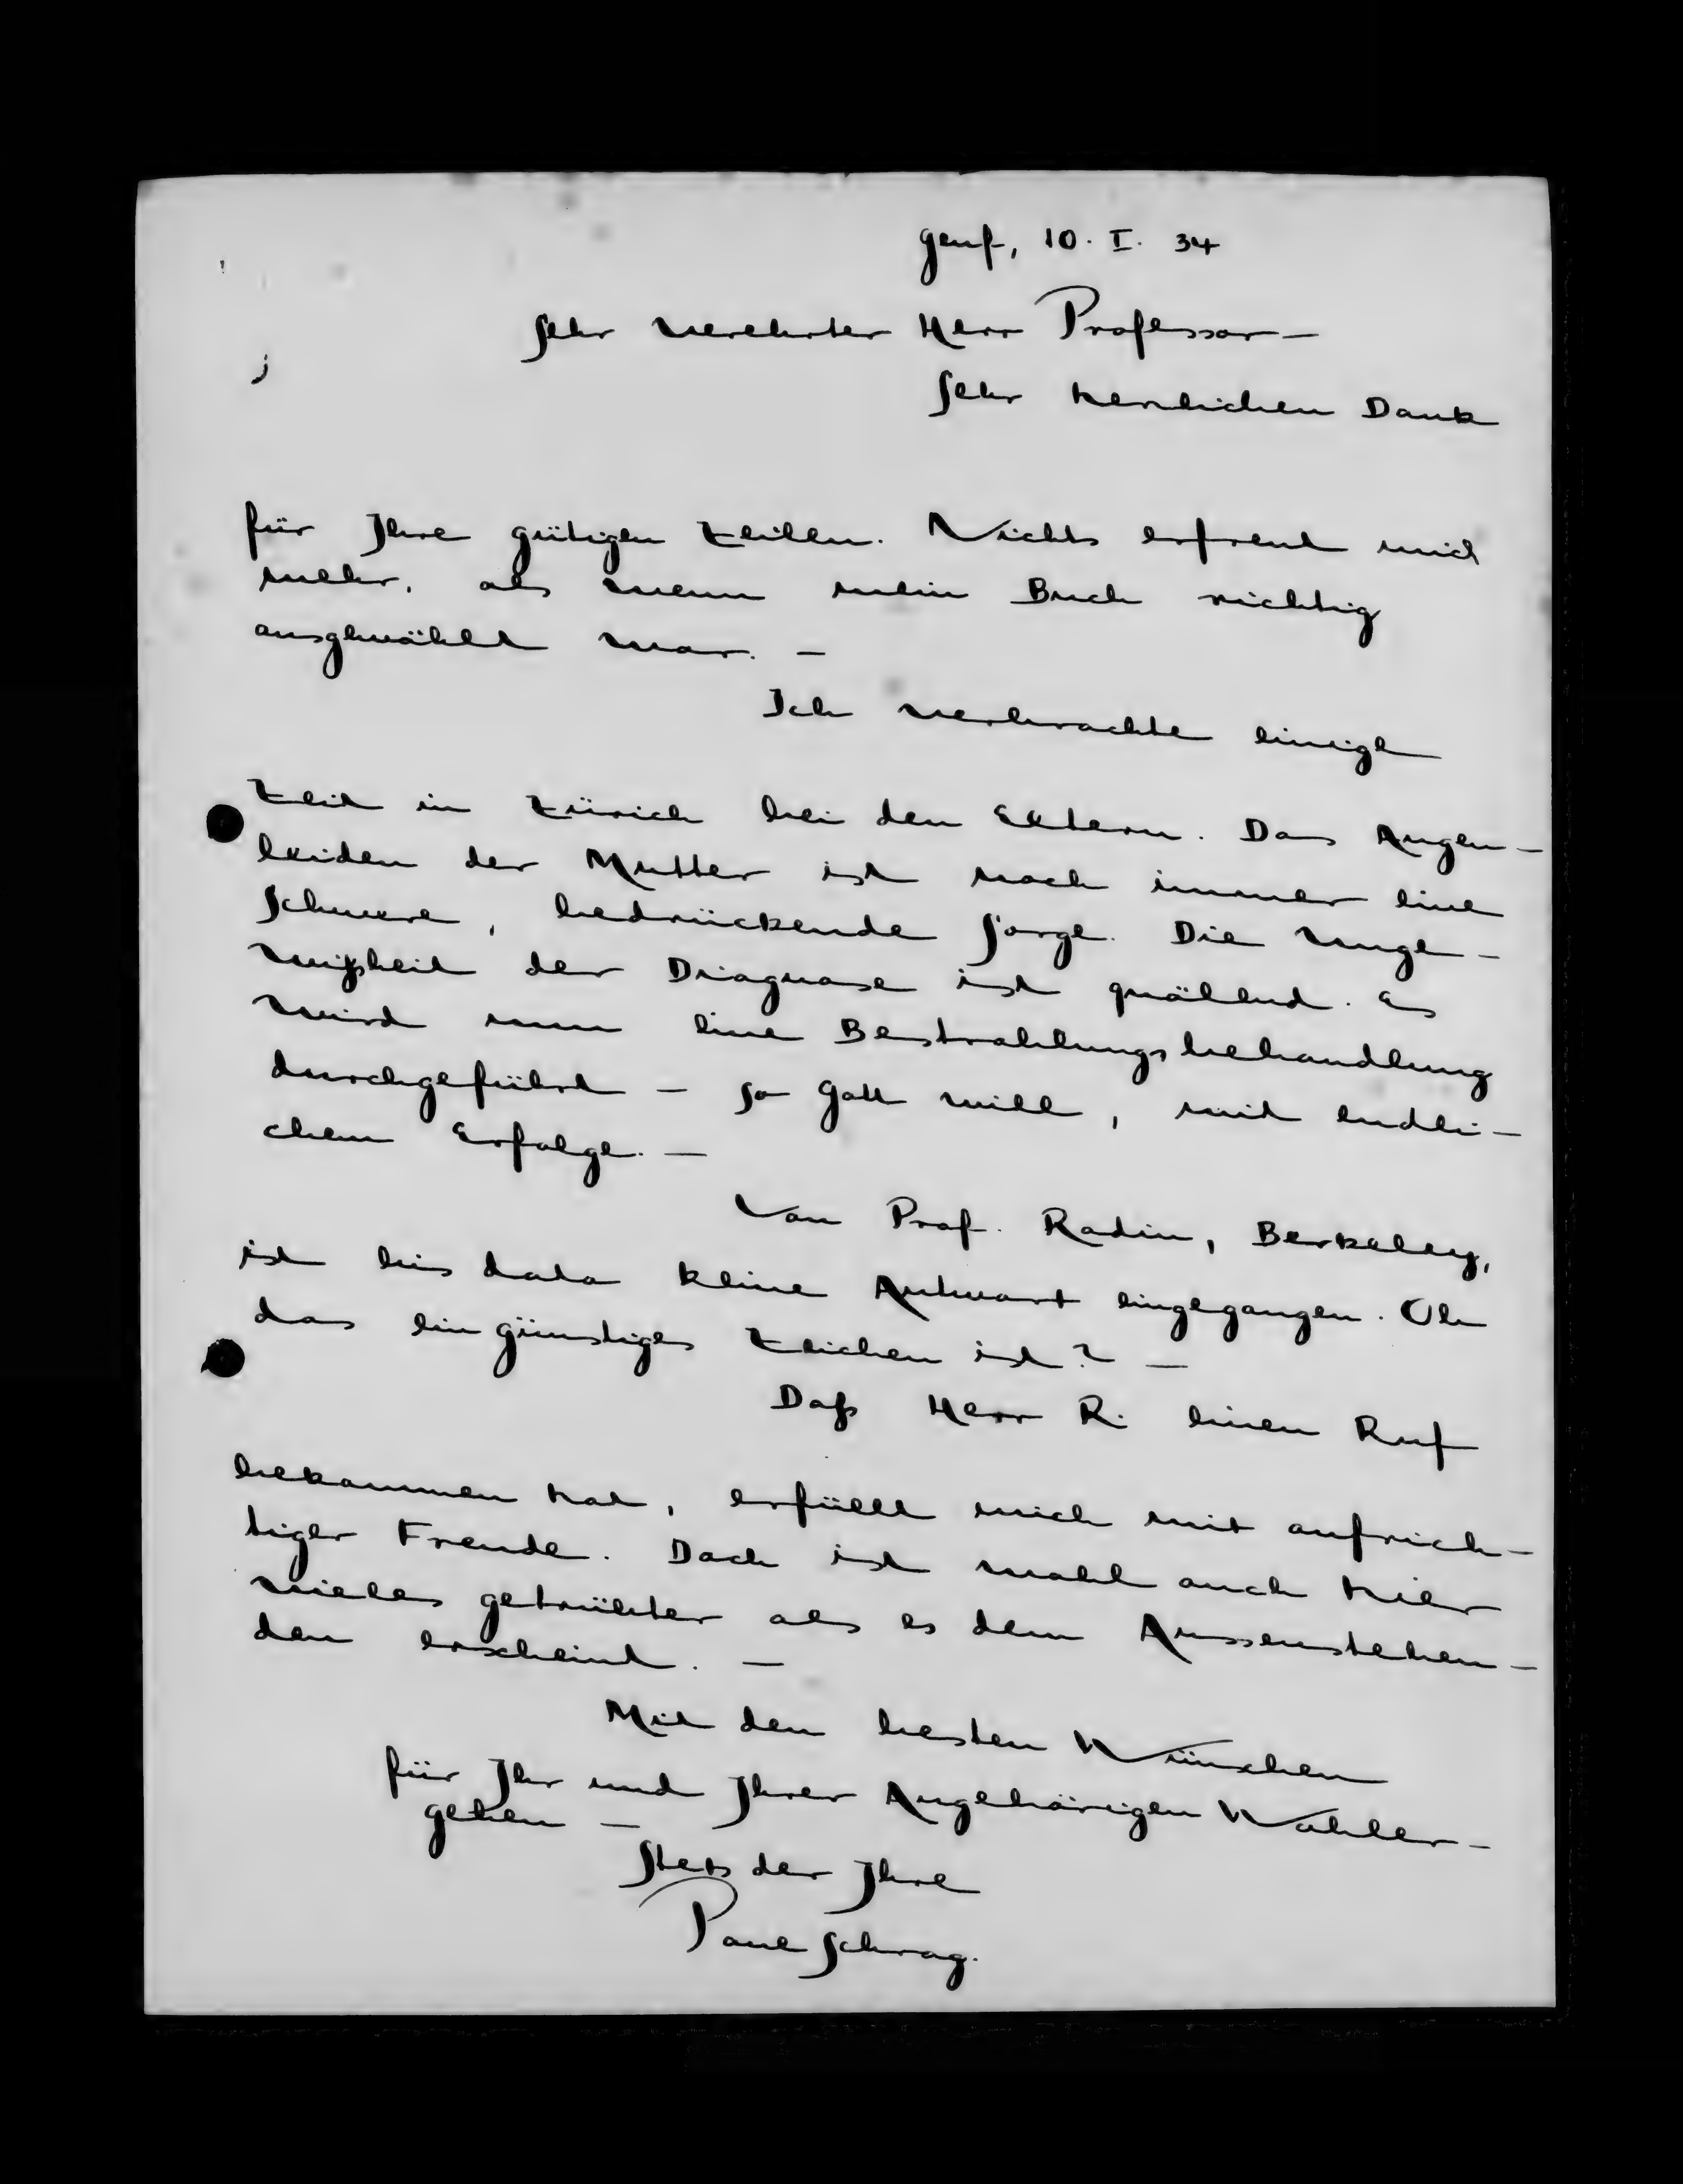 Genf, 10. I. 34
Sehr verehrter Herr Professor —
Sehr herzlichen Dank
für Ihre gütigen Zeilen. Nichts erfreut mich
mehr, als wenn mein Buch richtig
ausgewählt war. —
Ich verbrachte einige
Zeit in Zürich bei den Eltern. Das Augen-
leiden der Mutter ist noch immer eine
schwere, bedrückende Sorge. Die Unge-
wißheit der Diagnose ist quälend. Es
wird nun eine Bestrahlungsbehandlung
durchgeführt — so Gott will, mit endli-
chem Erfolge. —
Von Prof. Radin, Berkeley,
ist bis dato keine Antwort eingegangen. Ob
das ein günstiges Zeichen ist? —
Daß Herr R. einen Ruf
bekommen hat, erfüllt mich mit aufrich-
tiger Freude. Doch ist wohl auch hier
vieles getrübter als es dem Aussenstehen-
den erscheint. —
Mit den besten Wünschen
für Ihr und Ihrer Angehörigen Wohler-
gehen —
Stets der Ihre
Paul Schrag.